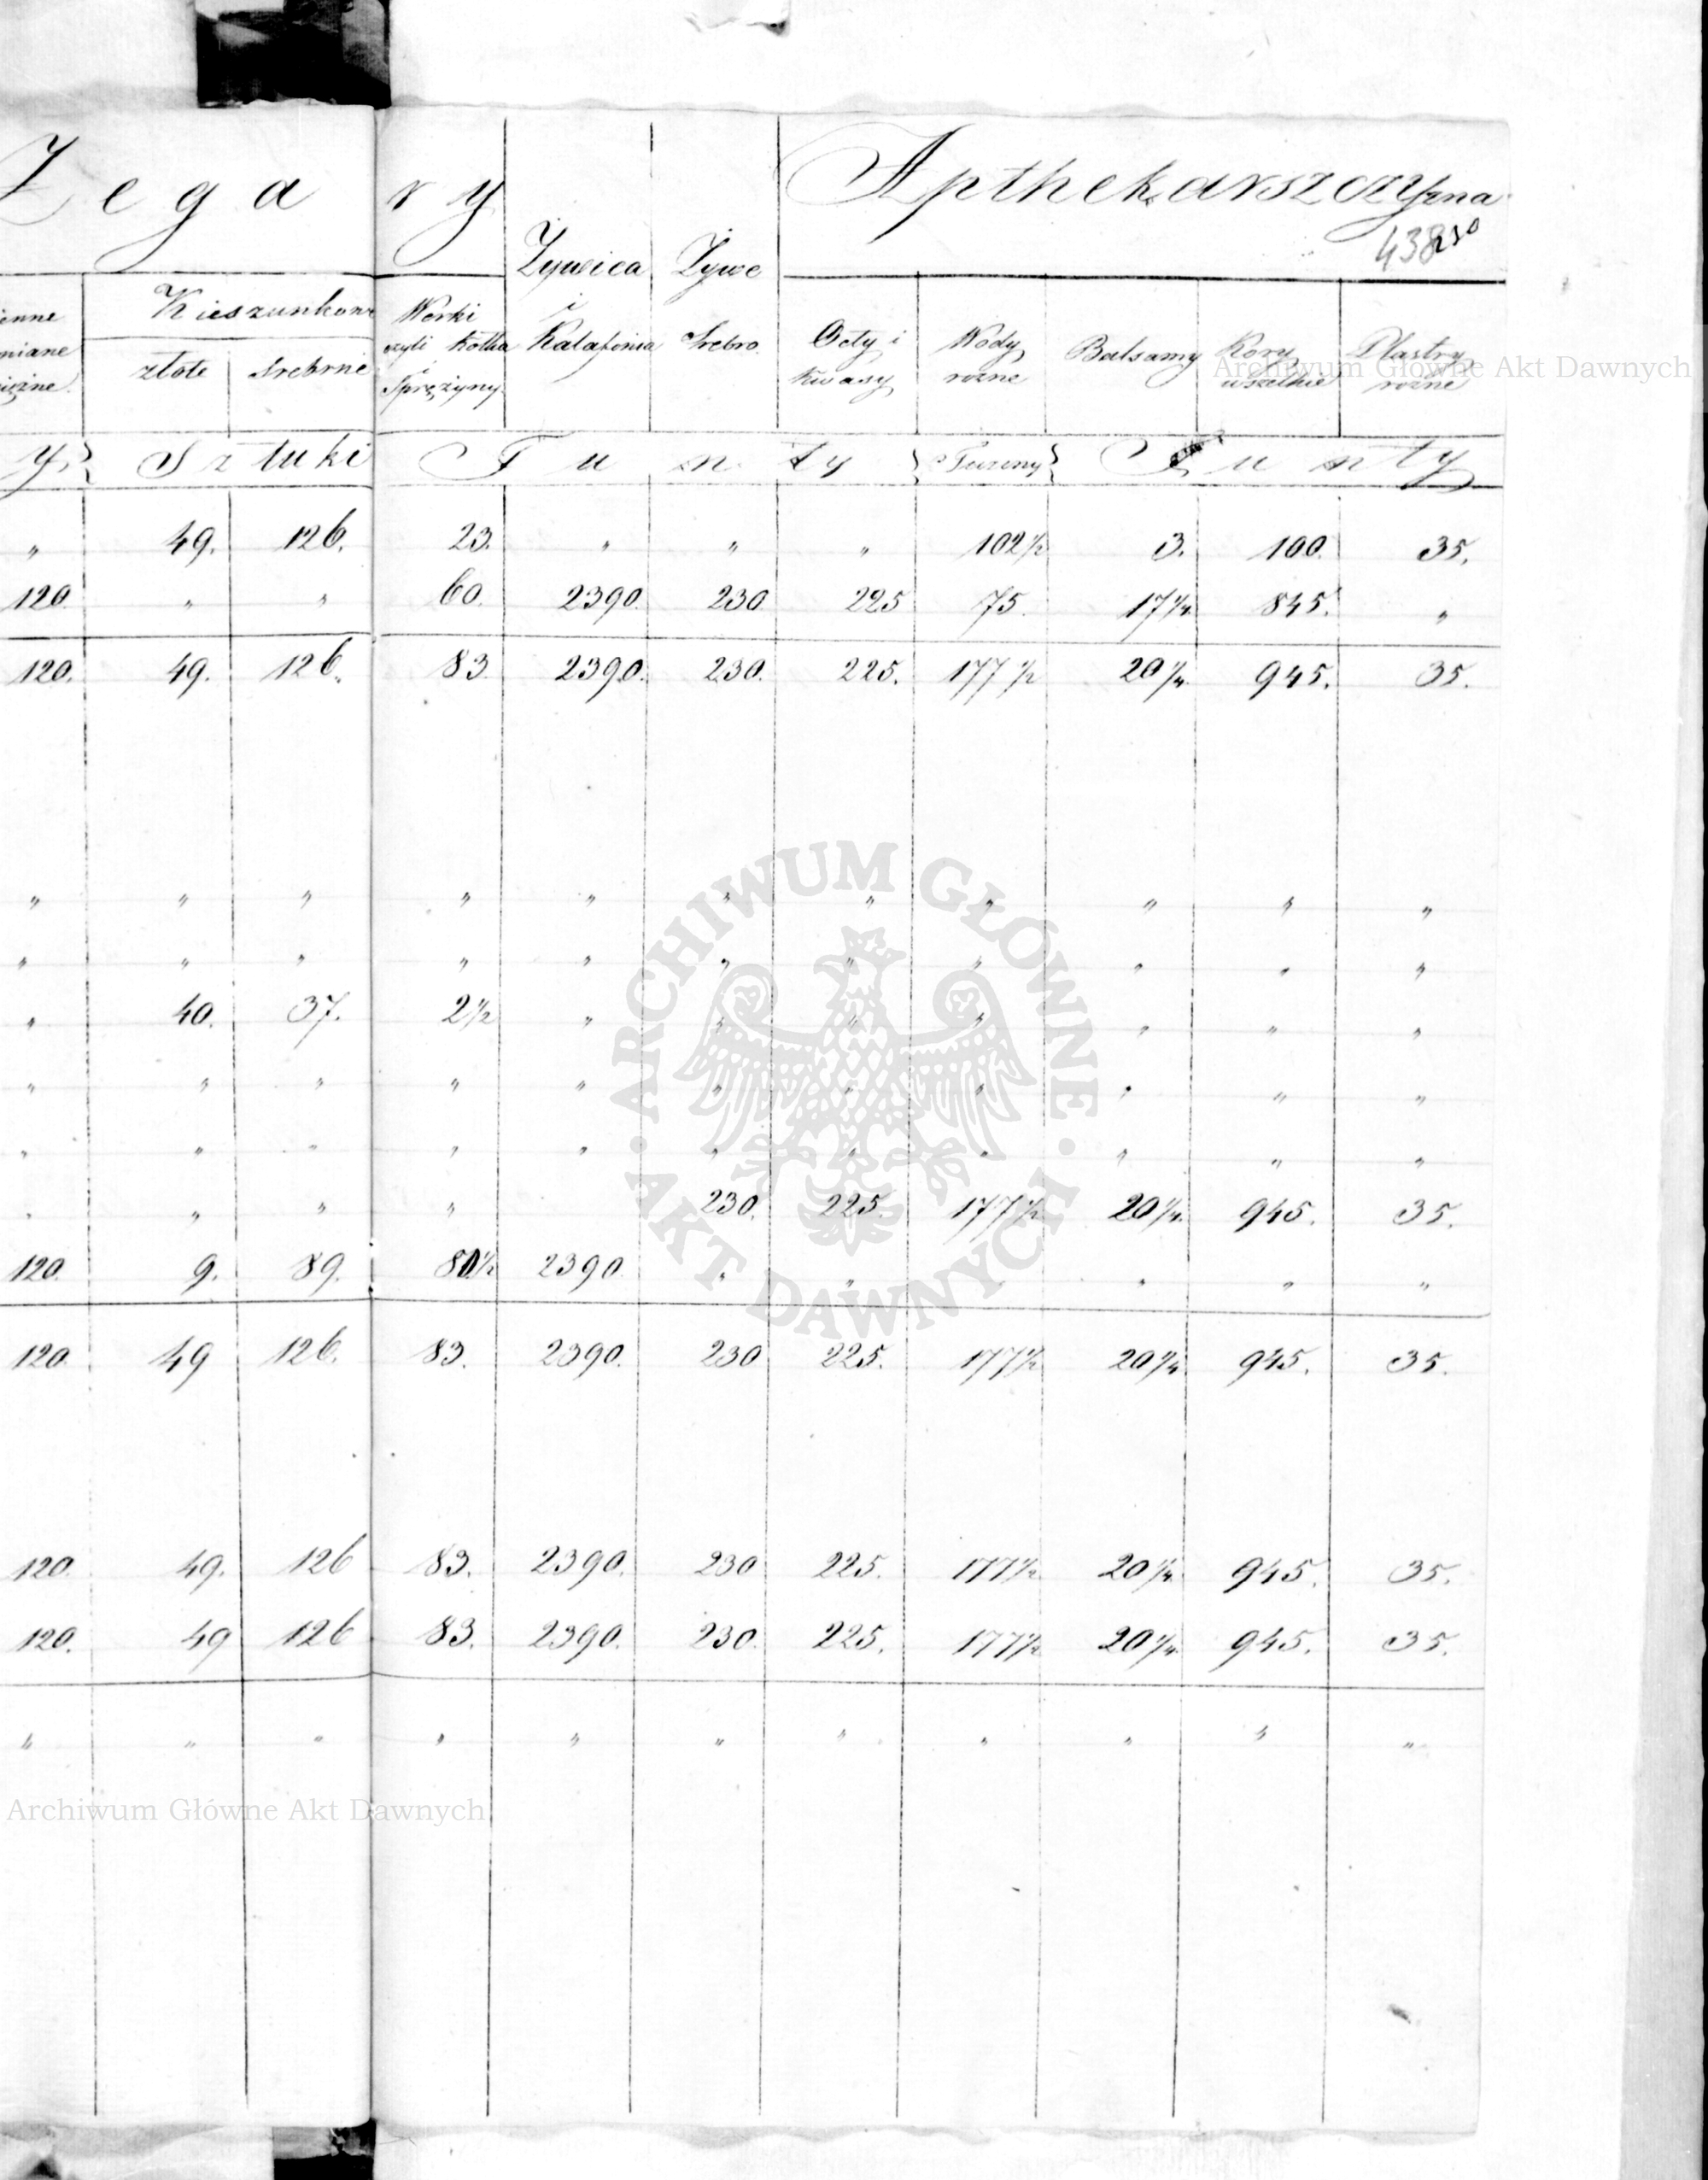 Zegary Apthekarszczyzna
438 230
Żywica Żywe
Kieszunkowe Werki i
czyli Kółka Kalafonia Srebro Octy i Wody Balsamy Kory Plastry
złote srebrne i Sprężyny kwasy rożne wszelkie rożne
Sztuki Funty Tuziny Funty
" 49. 126. 23. " " " 102½ 3. 100. 35.
120 " " 60. 2390. 230 225 75. 17¼ 845. "
120. 49. 126. 83 2390. 230. 225. 177½ 20¼ 945. 35.
" " " " " " " " " " "
" " " " " " " " " " "
" 40. 37. 2½ " " " " " " "
" " " " " " " " " " "
" " " " " " " " " " "
" " " " 230. 225. 177½ 20¼ 945. 35.
120. 9. 89. 80½ 2390 " " " " " "
120 49 126. 83. 2390. 230 225. 177½ 20¼ 945. 35.
120. 49. 126 83. 2390. 230 225. 177½ 20¼ 945. 35.
120. 49 126 83. 2390. 230. 225. 177½ 20¼ 945. 35.
" " " " " " " " " " "
Archiwum Główne Akt Dawnych
ARCHIWUM GŁÓWNE · AKT DAWNYCH ·
Archiwum Główne Akt Dawnych